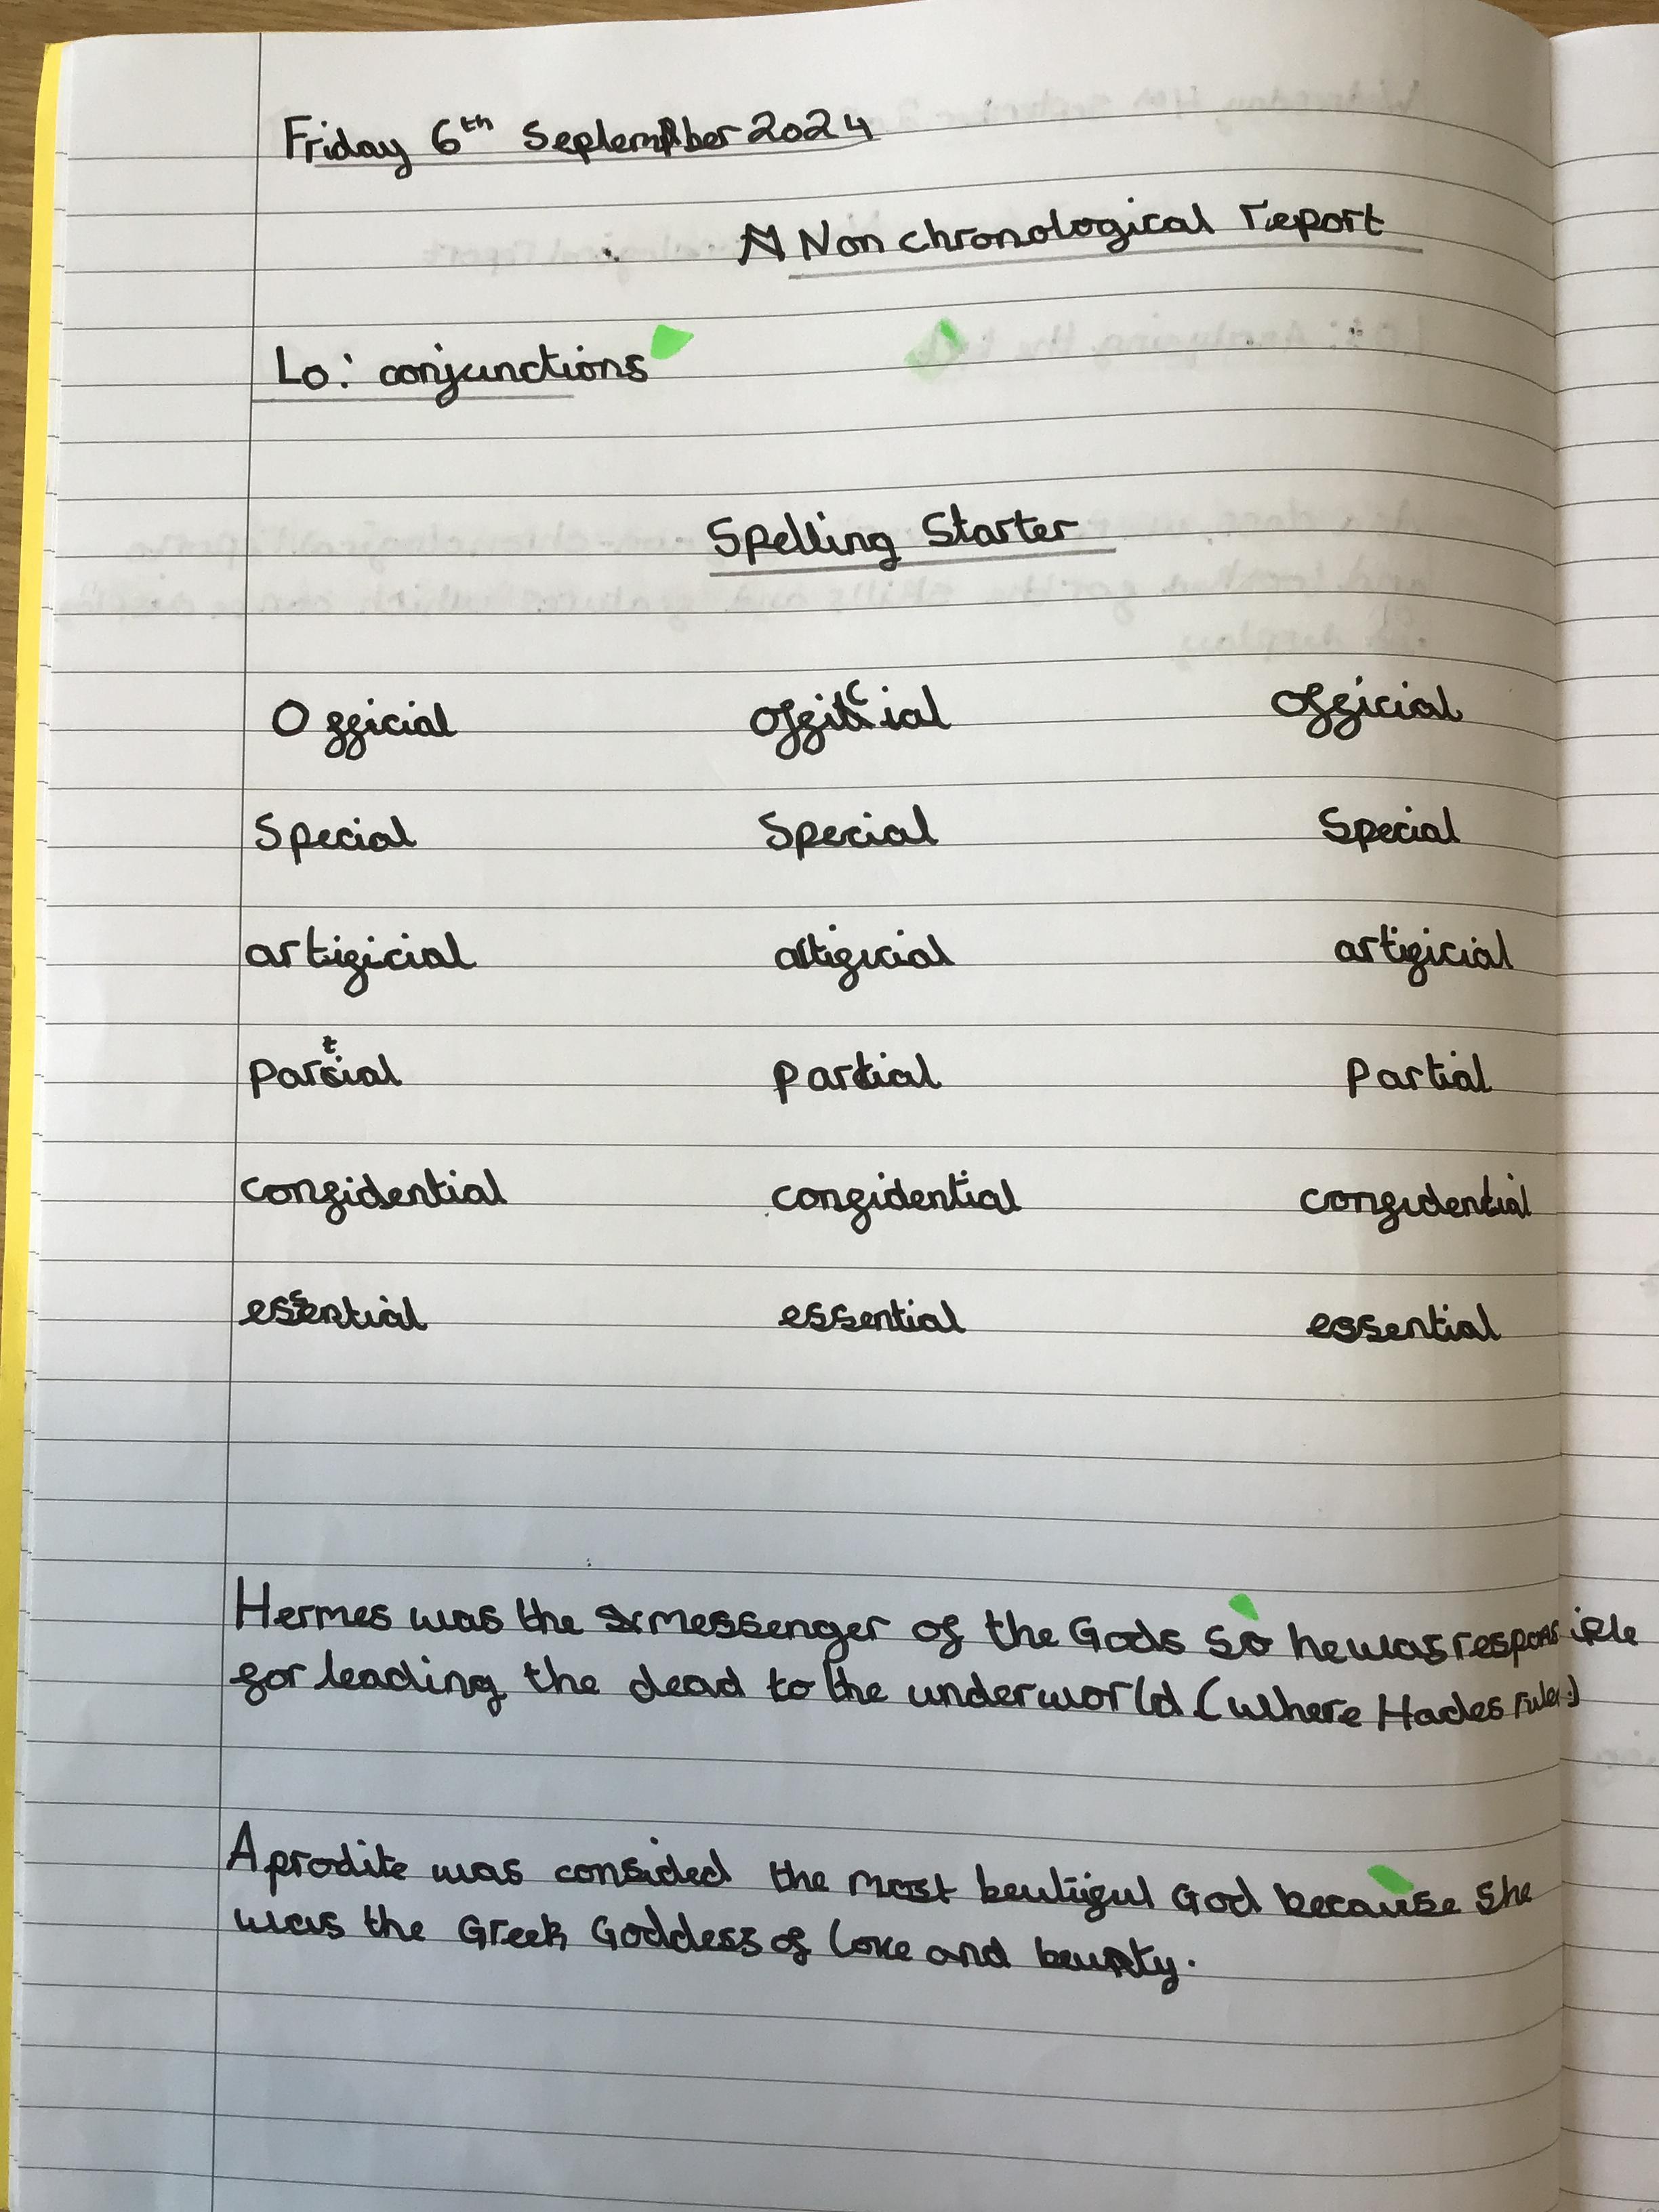 Friday 6th September 2024
Non chronological report
Lo: conjunctions
Spelling Starter
Official official official
Special Special Special
artificial artificial artificial
partial partial partial
confidential confidential confidential
essential essential essential
Hermes was the messenger of the Gods so he was responsible
for leading the dead to the underworld. (Where Hades rules.)
Aprodite was consided the most beutiful God because She
was the Greek Goddess of love and beuty.